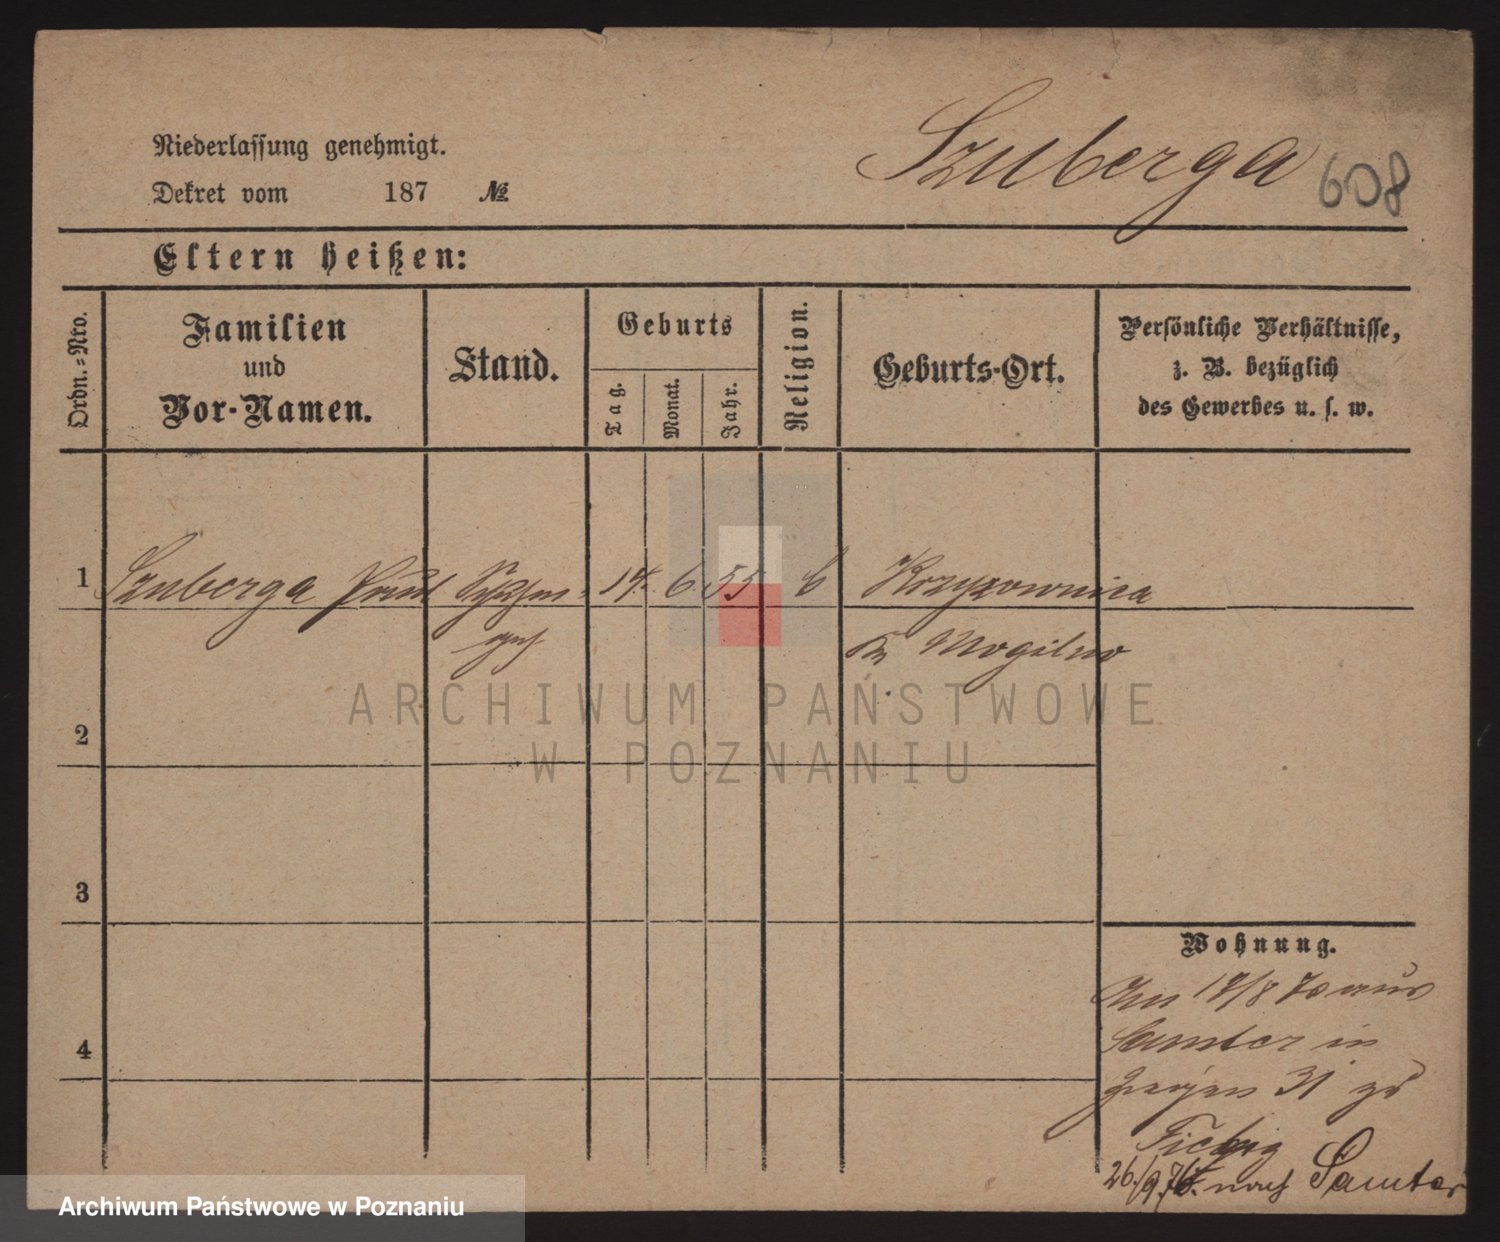 Szuberga 608
Niederlassung genehmigt.
Dekret vom 187 №
Eltern heißen:
Ordn.=Nro.
Familien
und
Vor-Namen.
Stand.
Geburts
Tag.
Monat.
Jahr.
Religion.
Geburts-Ort.
Persönliche Verhältnisse,
z. B. bezüglich
des Gewerbes u. s. w.
1 Szuberga Paul 14. 6 55 Krzyzownica
Mogilno
2
3
4
Wohnung.
aus
Samter in
31 zu
Fiebig
26./9. 76. nach Samter
ARCHIWUM PAŃSTWOWE
W POZNANIU
Archiwum Państwowe w Poznaniu